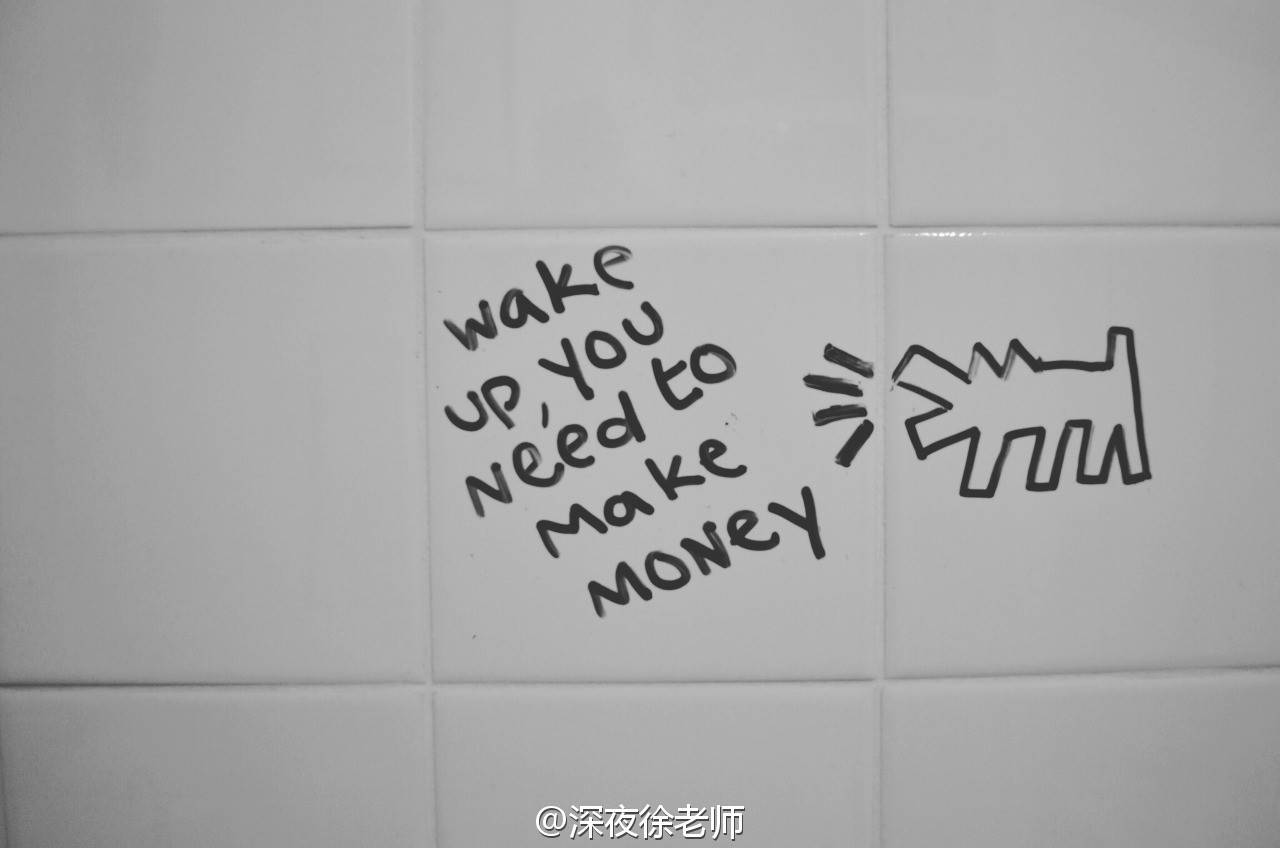 wake
up, you
Need to
Make
MONey
@深夜徐老师